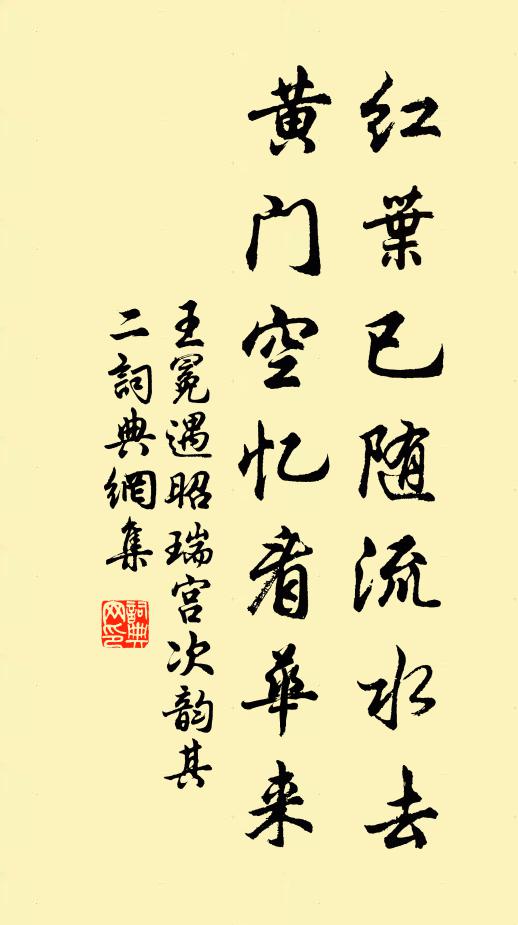 红葉已随流水去
黄门空忆看華来
王冕遇昭瑞宫次韵其
二詞典網集
詞典网印